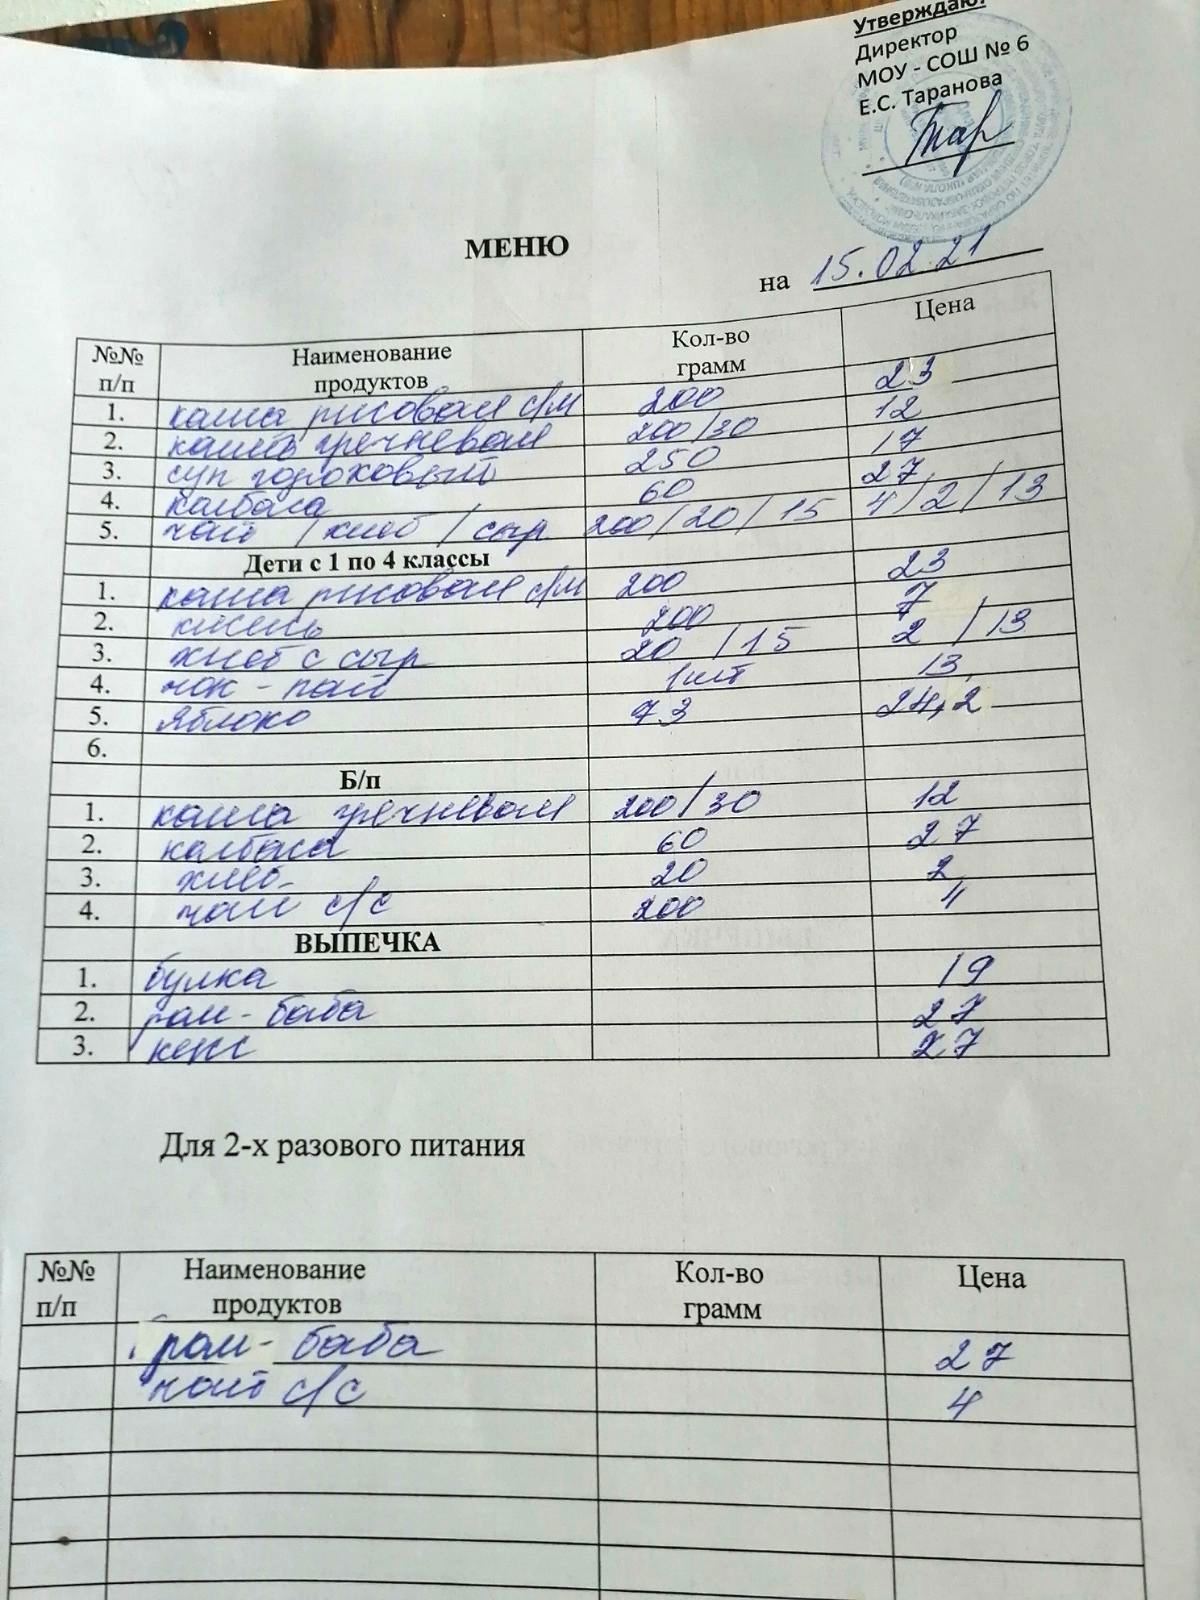 Утверждаю:
Директор
МОУ - СОШ № 6
Е.С. Таранова
МЕНЮ
на 15.02.21
№№ п/п Наименование продуктов Кол-во грамм Цена
1. каша рисовая с/м 200 23
2. каша гречневая 200/30 12
3. суп гороховый 250 17
4. колбаса 60 27
5. чай / хлеб / сыр 200/20/15 4/2/13
Дети с 1 по 4 классы
1. каша рисовая с/м 200 23
2. кисель 200 7
3. хлеб с сыр 20/15 2/13
4. чок-пай 1шт 13
5. яблоко 73 24,2
6.
Б/п
1. каша гречневая 200/30 12
2. колбаса 60 27
3. хлеб 20 2
4. чай с/с 200 4
ВЫПЕЧКА
1. булка 19
2. ром-баба 27
3. кекс 27
Для 2-х разового питания
№№ п/п Наименование продуктов Кол-во грамм Цена
ром-баба 27
чай с/с 4